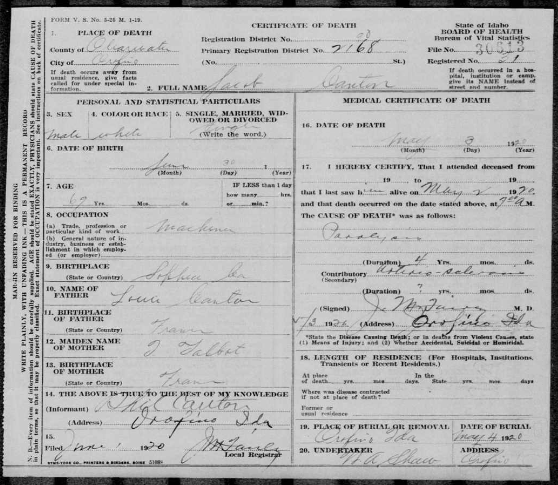 FORM V. S. No. 5-25 M. 1-19.
CERTIFICATE OF DEATH
State of Idaho
BOARD OF HEALTH
Bureau of Vital Statistics
1. PLACE OF DEATH
County of Clearwater
City of Orofino
Registration District No.
Primary Registration District No. 2168
File No. 30513
Registered No. 61
(No. St.)
If death occurs away from usual residence, give facts called for under special information.
If death occurred in a hospital, institution or camp, give its NAME instead of street and number.
2. FULL NAME Jacob Cantor
PERSONAL AND STATISTICAL PARTICULARS
3. SEX male
4. COLOR OR RACE white
5. SINGLE, MARRIED, WIDOWED OR DIVORCED
(Write the word.)
6. DATE OF BIRTH
June 30 1
(Month) (Day) (Year)
7. AGE
Yrs. Mos. ds
IF LESS than 1 day
how many hrs.
or min.?
8. OCCUPATION
(a) Trade, profession or particular kind of work
(b) General nature of industry, business or establishment in which employed (or employer)
9. BIRTHPLACE
(State or Country)
10. NAME OF FATHER Louie Cantor
11. BIRTHPLACE OF FATHER
(State or Country)
12. MAIDEN NAME OF MOTHER Talbot
13. BIRTHPLACE OF MOTHER
(State or Country)
14. THE ABOVE IS TRUE TO THE BEST OF MY KNOWLEDGE
(Informant) Cantor
(Address) Orofino Ida
15.
Filed June 1 1920
Local Registrar
SYMS-YORK CO., PRINTERS & BINDERS, BOISE
MEDICAL CERTIFICATE OF DEATH
16. DATE OF DEATH
May 3 1920
(Month) (Day) (Year)
17. I HEREBY CERTIFY, That I attended deceased
from 19 to 19
that I last saw him alive on May 2 1920
and that death occurred on the date stated above, at M.
The CAUSE OF DEATH* was as follows:
Paralysis
(Duration) 4 yrs. mos. ds.
Contributory Arterio-sclerosis
(Duration) ? yrs. mos. ds.
(Signed) M. D.
5/3 1920 (Address) Orofino Ida
*State the Disease Causing Death; or in deaths from Violent Causes, state (1) Means of Injury; and (2) Whether Accidental, Suicidal or Homicidal.
18. LENGTH OF RESIDENCE (For Hospitals, Institutions, Transients or Recent Residents.)
At place of death yrs. mos. days. In the State yrs. mos. days
Where was disease contracted if not at place of death?
Former or usual residence
19. PLACE OF BURIAL OR REMOVAL
Orofino Ida
DATE OF BURIAL
May 4 1920
20. UNDERTAKER
W A Shaw
ADDRESS
Orofino
MARGIN RESERVED FOR BINDING
WRITE PLAINLY, WITH UNFADING INK—THIS IS A PERMANENT RECORD
N. B.—Every item of information should be carefully supplied. AGE should be stated EXACTLY. PHYSICIANS should state CAUSE OF DEATH in plain terms, so that it may be properly classified. Exact statement of OCCUPATION is very important. See instructions on back of certificate.